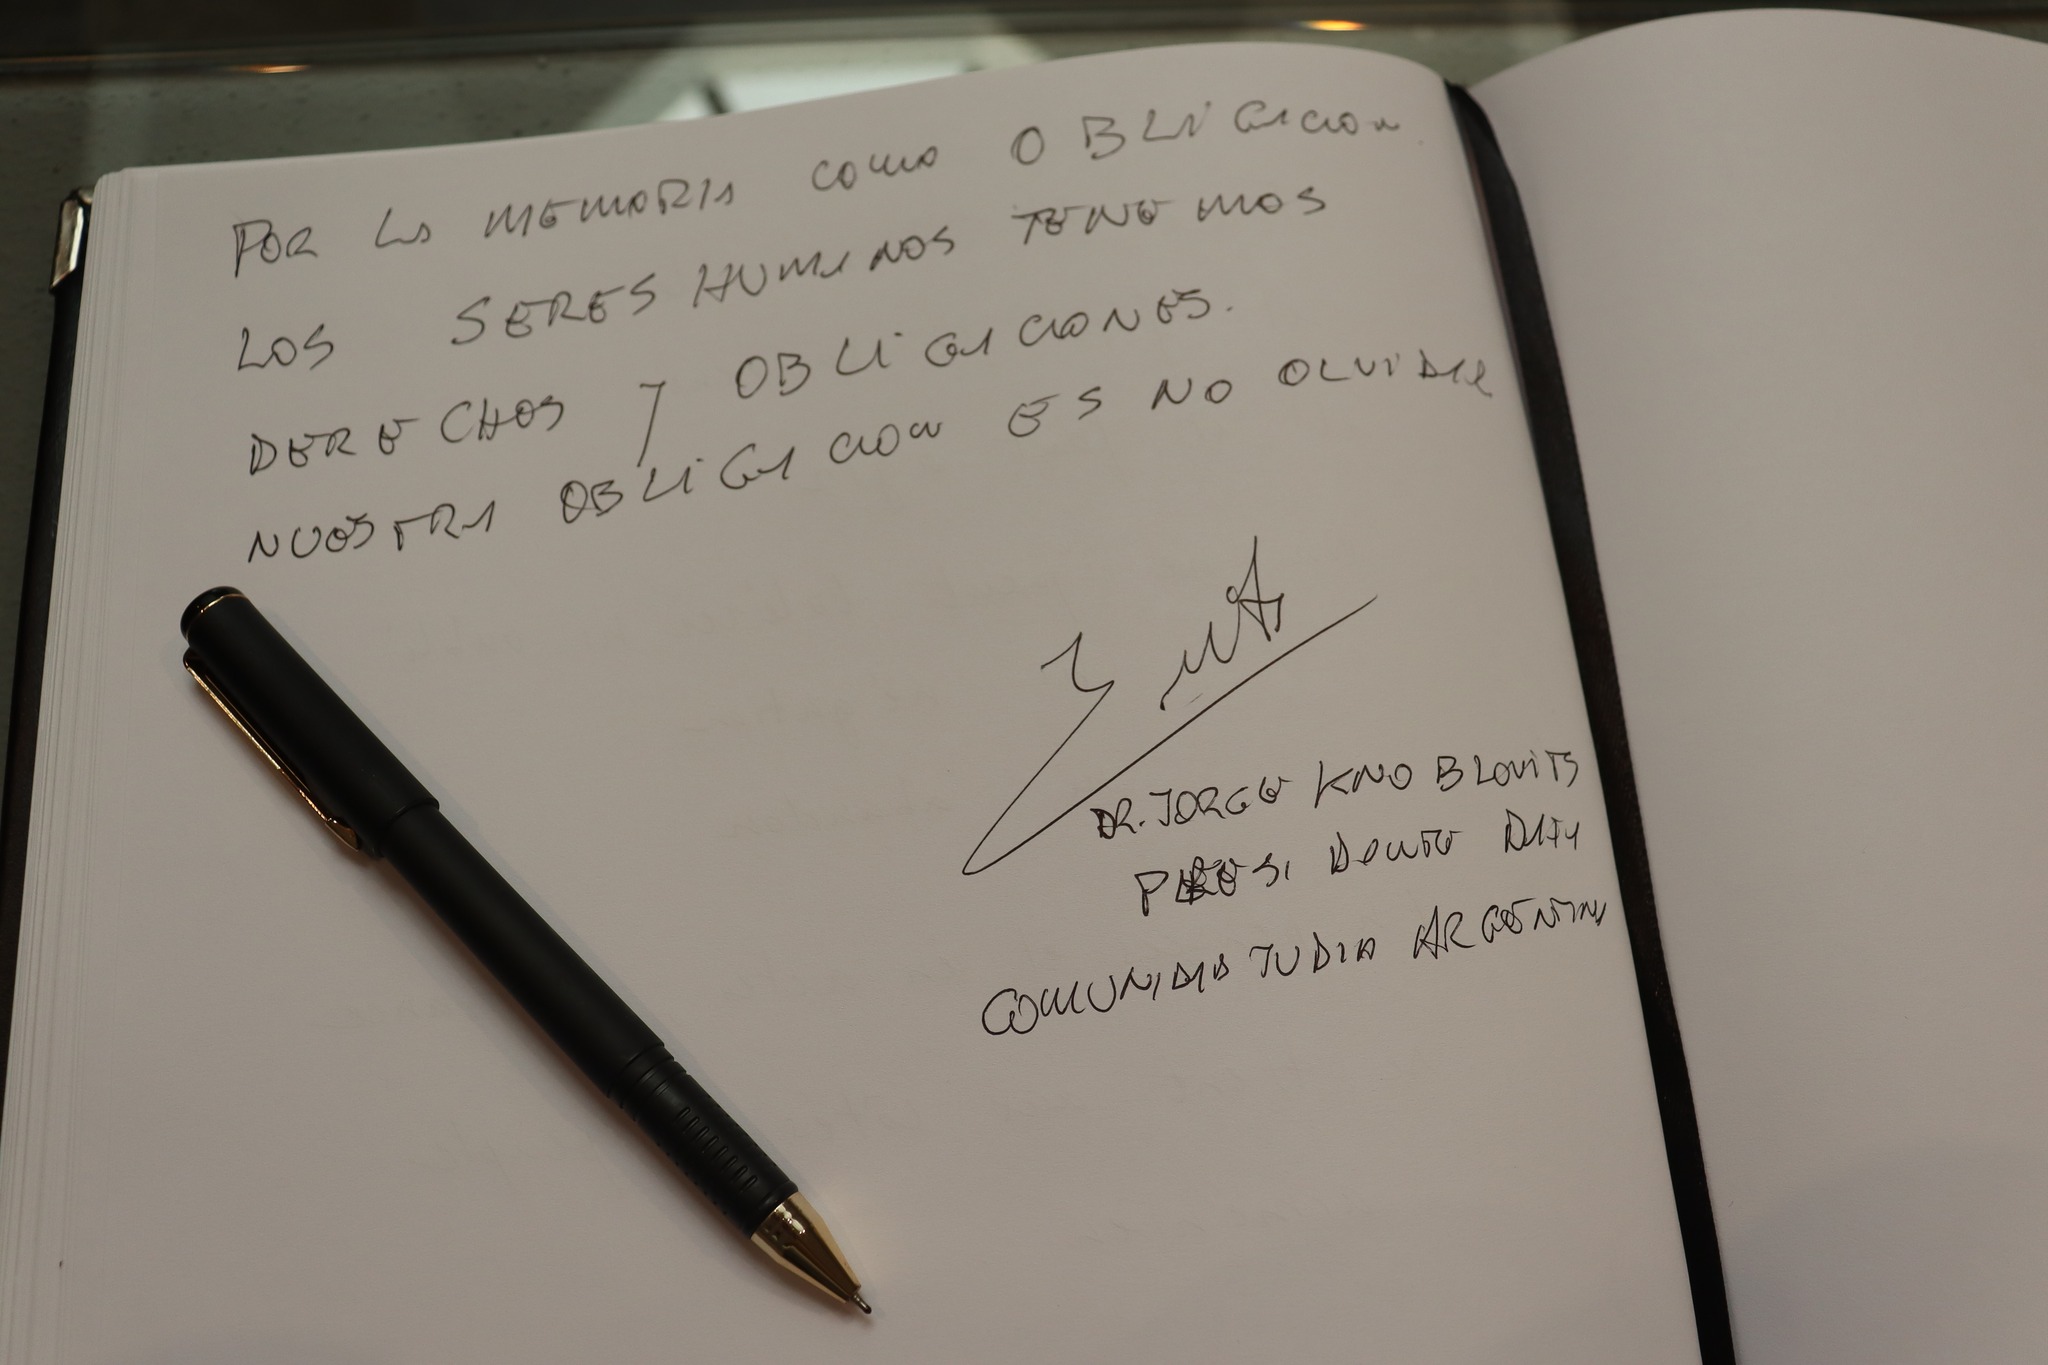 POR LA MEMORIA COMO OBLIGACION
LOS SERES HUMANOS TENEMOS
DERECHOS Y OBLIGACIONES.
NUESTRA OBLIGACION ES NO OLVIDAR
DR. JORGE KNOBLOVITS
PRESIDENTE DAIA
COMUNIDAD JUDIA ARGENTINA